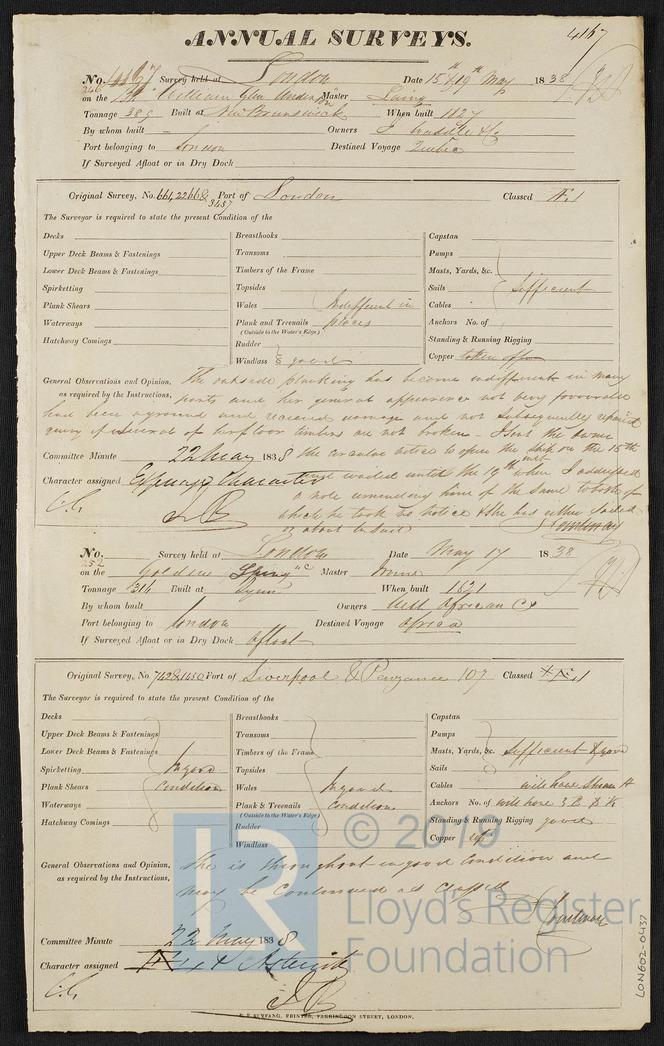 ANNUAL SURVEYS.
4167
No. 4167 Survey held at London Date 15th & 19th May 1838
246 on the William Glen Anderson Master Laing
Tonnage 389 Built at New Brunswick When built 1827
By whom built Owners
Port belonging to London Destined Voyage Quebec
If Surveyed Afloat or in Dry Dock
Original Survey, No. 664, 2266 & 3437 Port of London Classed Æ 1
The Surveyor is required to state the present Condition of the
Decks
Upper Deck Beams & Fastenings
Lower Deck Beams & Fastenings
Spirketting
Plank Shears
Waterways
Hatchway Comings
Breasthooks
Transoms
Timbers of the Frame
Topsides
Wales Indifferent in
Plank and Treenails places
(Outside to the Water's Edge)
Rudder
Windlass good
Capstan
Pumps
Masts, Yards, &c.
Sails Sufficient
Cables
Anchors No. of
Standing & Running Rigging
Copper taken off
General Observations and Opinion, The outside planking has become indifferent in many
as required by the Instructions, parts and her general appearance not being favourable
had been aground and received damage and not subsequently repaired
query if several of her floor timbers are not broken - I sent the owner
the circular notice to open the ship on the 15th
Committee Minute 22 May 1838
and waited until the 19th when I addressed
Character assigned Expunge Character
a note reminding him of the same to both of
which he took no notice & she has either sailed
or about to do so
C.C.
No. 252 Survey held at London Date May 17 1838
on the Golden Spring Master Irvine
Tonnage 316 Built at Lynn When built 1821
By whom built Owners West African Co
Port belonging to London Destined Voyage Africa
If Surveyed Afloat or in Dry Dock Afloat
Original Survey, No. 742 & 1450 Port of Liverpool & Penzance 107 Classed Æ 1
The Surveyor is required to state the present Condition of the
Decks
Upper Deck Beams & Fastenings
Lower Deck Beams & Fastenings
Spirketting In good
Plank Shears Condition
Waterways
Hatchway Comings
Breasthooks
Transoms
Timbers of the Frame
Topsides
Wales In good
Plank & Treenails Condition
(Outside to the Water's Edge)
Rudder
Windlass
Capstan
Pumps
Masts, Yards, &c. Sufficient & good
Sails
Cables will have
Anchors No. of will have 3 B
Standing & Running Rigging good
Copper
General Observations and Opinion, She is throughout in good Condition and
as required by the Instructions, may be Continued as classed
Committee Minute 22 May 1838
Character assigned Æ 1 Asterisk
C.C.
R
© 2019
Lloyd's Register
Foundation
LON602-0437
SEYFANG, PRINTER, FARRINGDON STREET, LONDON.